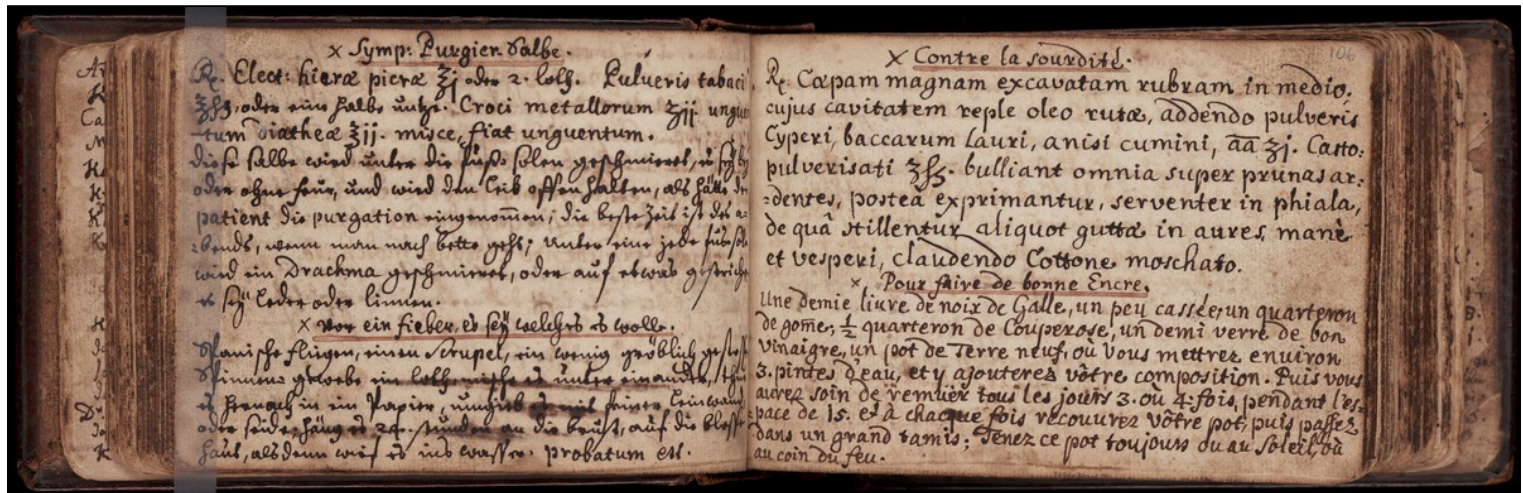 × Symp: Purgier Salbe.
℞. Elect: hieræ picræ ʒj oder 2. loth. Pulveris tabaci
ʒſß, oder eine halbe untze. Croci metallorum ʒij. ungu
-tum Diatheæ ʒij. misce, fiat unguentum.
diese salbe wird unter die fuß solen geschmieret, es seÿ beÿ
oder ohne feur, und wird den leib offen halten, als hätte der
patient die purgation eingenom̄en; die beste Zeit ist des a-
-bends, wenn man nach bette geht; unter eine jede fußsole
wird ein Drachma geschmieret, oder auf etwas gestriche
es seÿ leder oder linnen.
× vor ein fieber, es seÿ welches es wolle.
Spanische fliegen, einen Scrupel, ein wenig gröblich gestoß
Spinnen gewebe ein loth, mische es unter einander, thu
es hernach in ein Papier, umgieb es mit feiner leinwand
oder seide, häng es 24. stunden an die brust, auf die bloße
haut, als denn wirf es ins wasser. probatum est.
106
× Contre la sourdité.
℞. Cæpam magnam excavatam rubram in medio.
cujus cavitatem reple oleo rutæ, addendo pulveris
Cyperi, baccarum Lauri, anisi cumini, āā ʒj. Casto:
pulverisati ʒſß. bulliant omnia super prunas ar:
:dentes, postea exprimantur, serventer in phiala,
de quâ stillentur aliquot guttæ in aures, manè
et vesperi, claudendo Cottone moschato.
× Pour faire de bonne Encre.
Une demie livre de noix de Galle, un peu cassée; un quarteron
de gom̄e; ½ quarteron de Couperose, un demi verre de bon
vinaigre, un pot de Terre neuf, où vous mettrez environ
3. pintes d'eau, et y ajouterez vôtre composition. Puis vous
aurez soin de remüer tous les jours 3. où 4. fois, pendant l'es-
-pace de 15. et à chaque fois recouvrez vôtre pot, puis passez
dans un grand tamis; Tenez ce pot toujours ou au Soleil, où
au coin du feu.